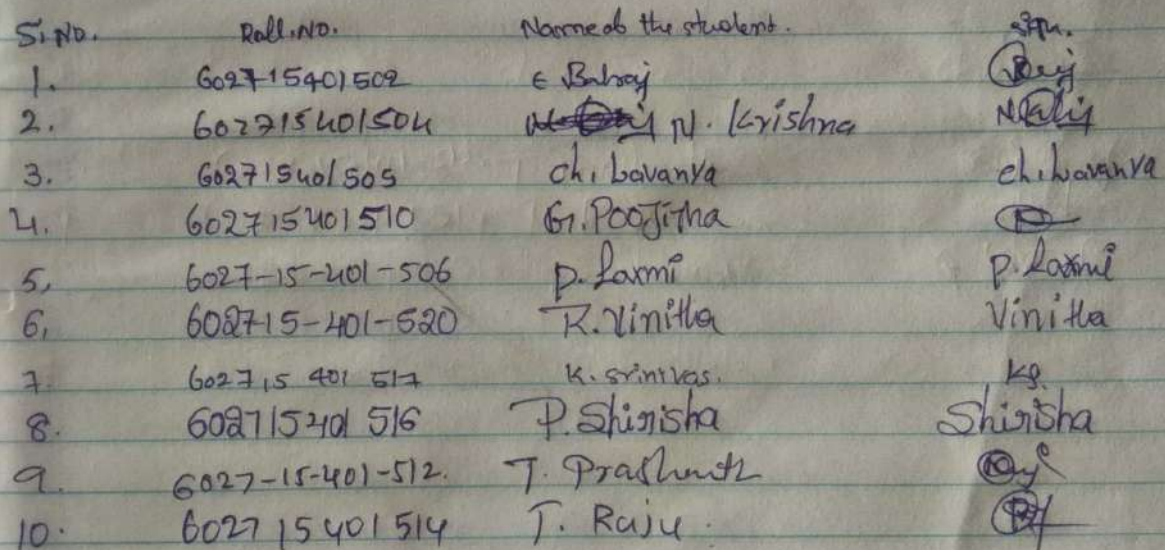 S.NO. Roll.NO. Name of the student. Sign.
1. 602715401502 E Balraj
2. 602715401504 N. Krishna
3. 602715401505 ch. Lavanya ch. Lavanya
4. 602715401510 G. Poojitha
5. 6027-15-401-506 P. Laxmi P. Laxmi
6. 602715-401-520 R. Vinitha Vinitha
7. 602715 401 517 K. Srinivas. KS.
8. 602715401 516 P. Shirisha Shirisha
9. 6027-15-401-512. T. Prashanth
10. 602715401514 T. Raju.